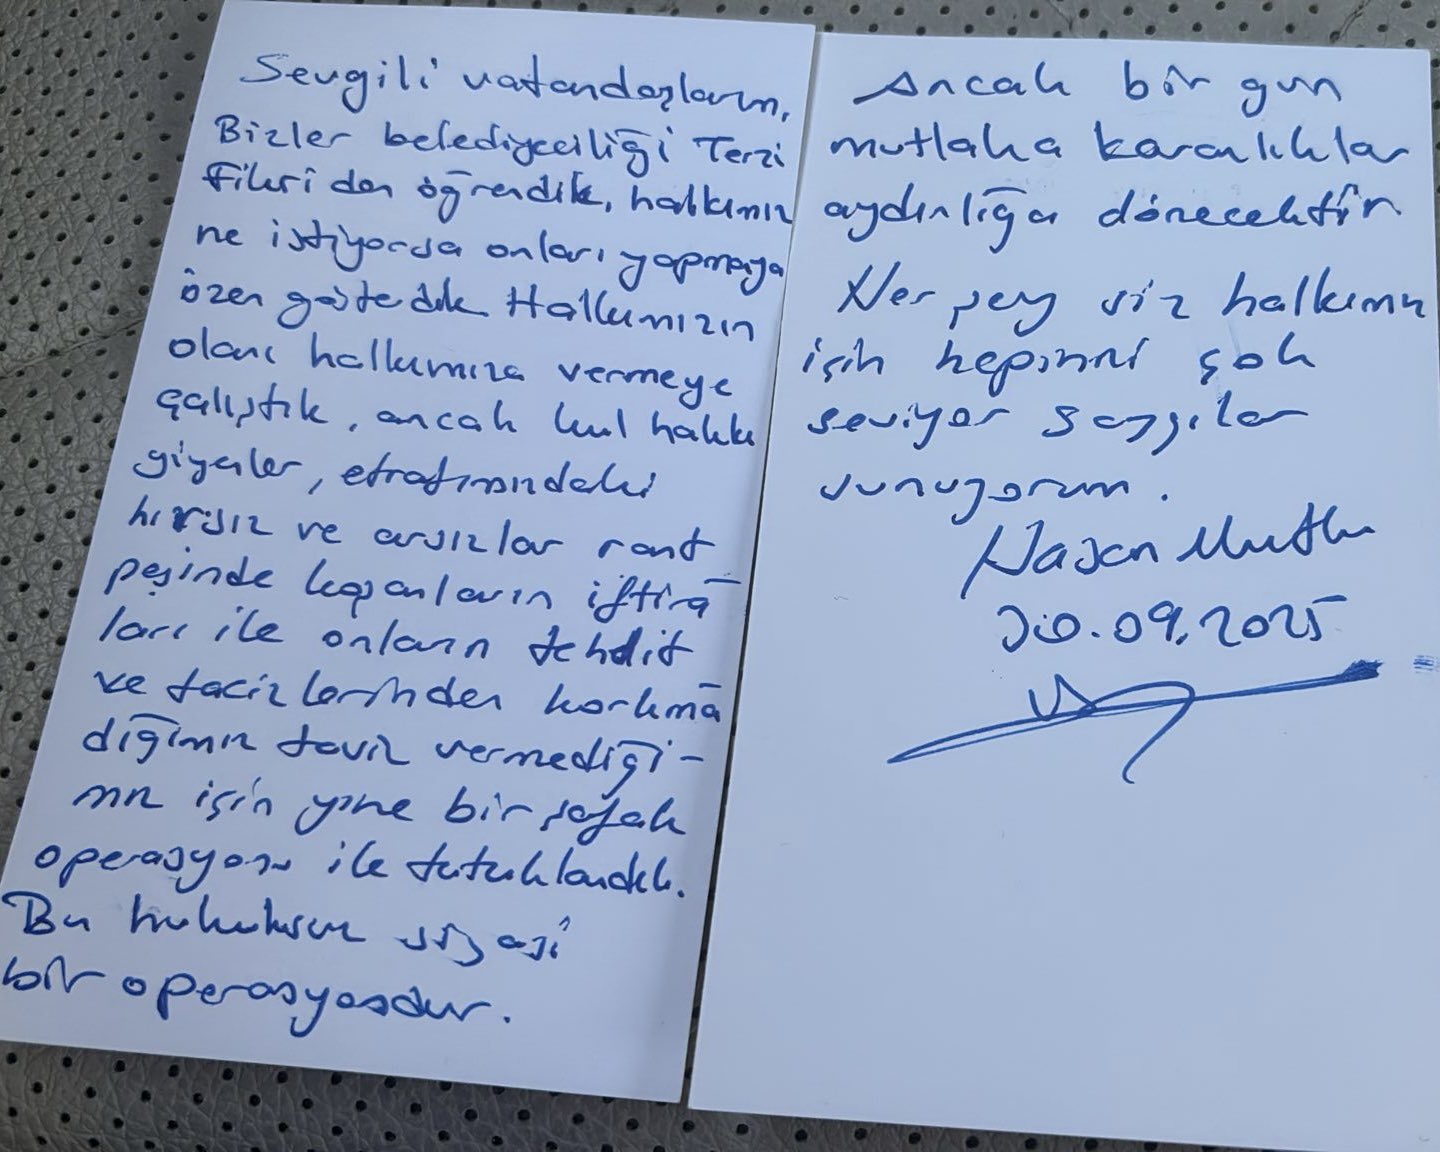 Sevgili vatandaşlarım,
Bizler belediyeciliği Terzi
Fikri den öğrendik, halkımız
ne istiyorsa onları yapmaya
özen gösterdik Halkımızın
olanı halkımıza vermeye
çalıştık, ancak kul hakkı
yiyenler, etrafımızdaki
hırsız ve arsızlar rant
peşinde koşanların iftira
ları ile onların tehdit
ve tacizlerinden korkma
dığımız taviz vermediği-
miz için yine bir şafak
operasyonu ile tutuklandık.
Bu hukuksuz siyasi
bir operasyondur.
Ancak bir gün
mutlaka karanlıklar
aydınlığa dönecektir.
Her şey siz halkımız
için hepinizi çok
seviyor saygılar
sunuyorum.
Hasan Mutlu
30.09.2025